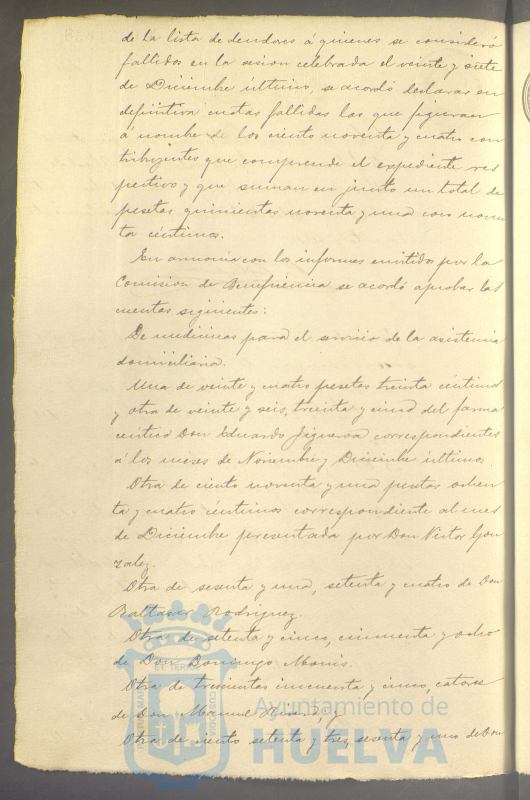 de la lista de deudores á quienes se consideró
fallidos en la sesion celebrada el veinte y siete
de Diciembre último, se acordó declarar en
definitiva cuotas fallidas las que figuran
á nombre de los ciento noventa y cuatro con
tribuyentes que comprende el expediente res
pectivo y que suman en junto un total de
pesetas quinientas noventa y una con noven
ta céntimos.
En armonia con los informes emitidos por la
Comision de Beneficencia se acordó aprobar las
cuentas siguientes:
De medicinas para el servicio de la asistencia
domiciliaria.
Una de veinte y cuatro pesetas treinta céntimos
y otra de veinte y seis, treinta y cinco del farma
céutico Don Eduardo Figueroa correspondientes
á los meses de Noviembre y Diciembre últimos.
Otra de ciento noventa y una pesetas ochen
ta y cuatro céntimos correspondiente al mes
de Diciembre presentada por Don Victor Gon
zalez.
Otra de sesenta y una, setenta y cuatro de Don
Baltasar Rodriguez.
Otra de setenta y cinco, cincuenta y ocho
de Don Domingo
Otra de trescientas cincuenta y cinco, catorce
de Don Manuel y
Otra de ciento setenta y tres, sesenta y uno de Don
Ayuntamiento de
HUELVA